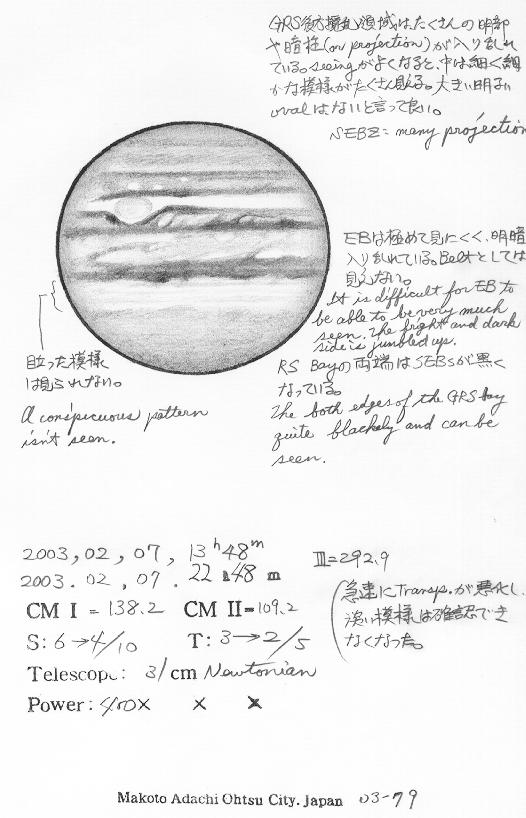 GRS後方擾乱領域は、たくさんの明部
や暗柱(on projection)が入り乱れ
ている。seeingがよくなると、中は細く細
かな模様がたくさん見える。大きい明るい
ovalはないと言って良い。
SEBZ = many projection
EBは極めて見にくく、明暗
入り乱れている。Beltとしては
見えない。
It is difficult for EB to
be able to be very much
seen. The bright and dark
side is jumbled up.
RS Bayの両端はSEBsが黒く
なっている。
The both edges of the GRS bay
quite blackely and can be
seen.
目立った模様
は見られない。
A conspicuous pattern
isn't seen.
2003, 02, 07, 13h 48m
III=292.9
2003. 02, 07. 22 h 48 m
CM I = 138.2 CM II = 109.2
S: 6→4/10 T: 3→2/5
Telescope: 31cm Newtonian
Power: 400X X X
急速にTransp.が悪化し、
淡い模様は確認でき
なくなった。
Makoto Adachi Ohtsu City. Japan 03-79